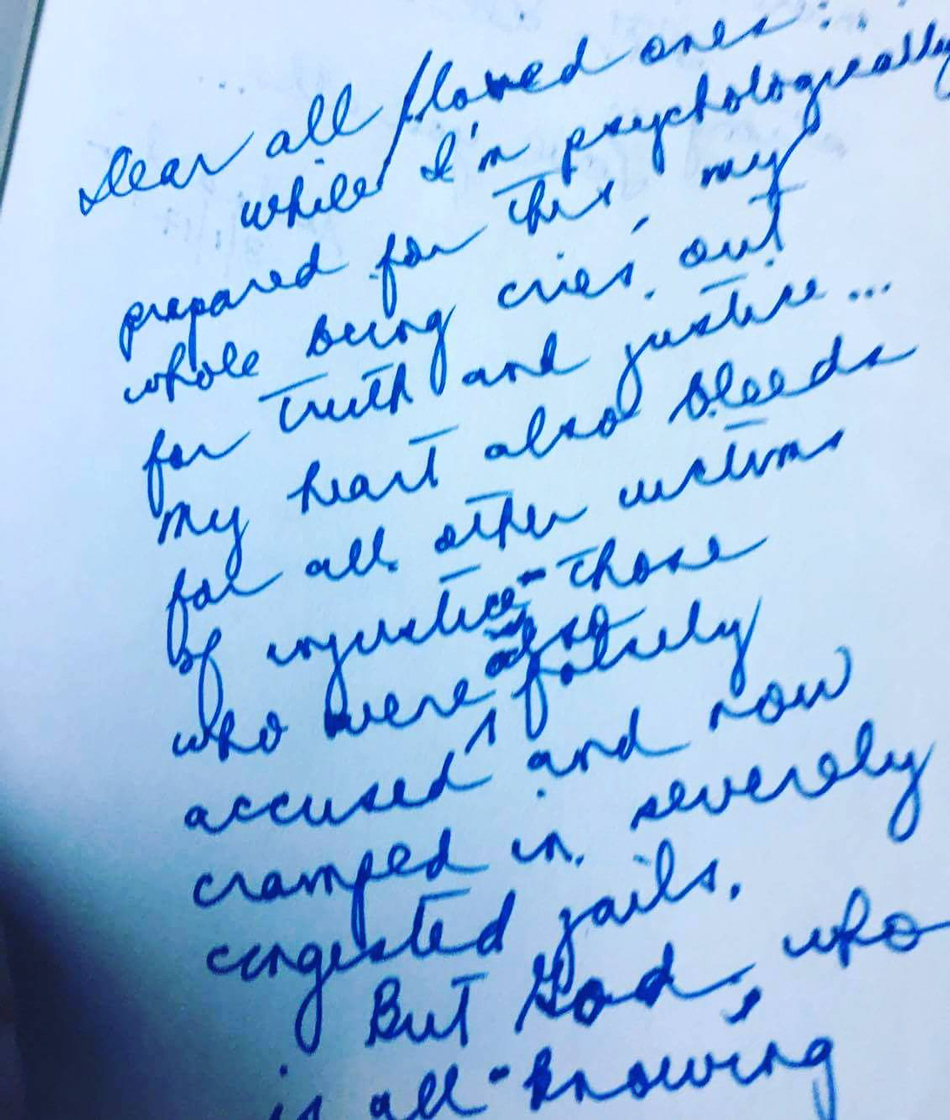 Dear all flowed ones :
while I'm psychologically
prepared for this, my
whole being cries out
for truth and justice...
My heart also bleeds
for all other victims
of injustice - those
who were also falsely
accused and now
cramped in severely
congested jails.
But God, who
is all-knowing